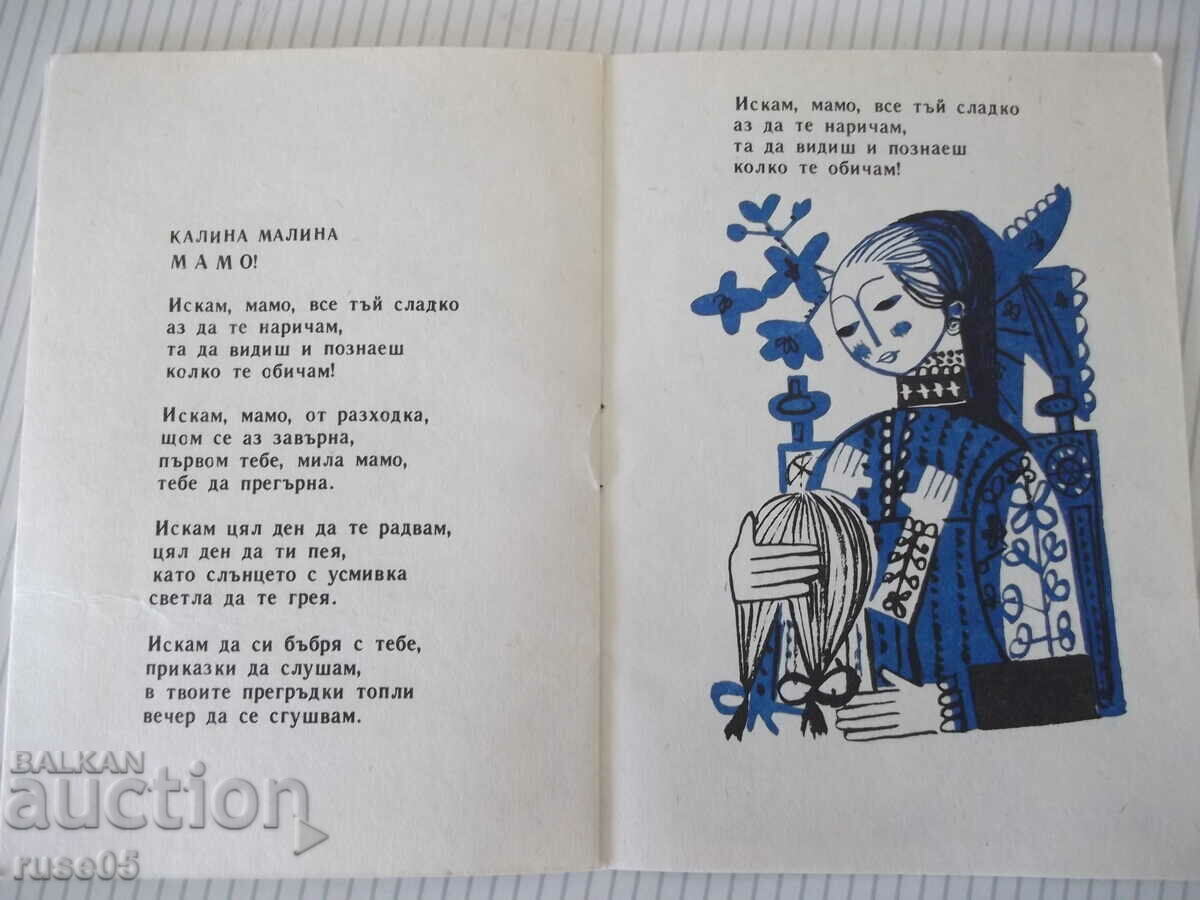 КАЛИНА МАЛИНА
МАМО!
Искам, мамо, все тъй сладко
аз да те наричам,
та да видиш и познаеш
колко те обичам!
Искам, мамо, от разходка,
щом се аз завърна,
първом тебе, мила мамо,
тебе да прегърна.
Искам цял ден да те радвам,
цял ден да ти пея,
като слънцето с усмивка
светла да те грея.
Искам да си бъбря с тебе,
приказки да слушам,
в твоите прегръдки топли
вечер да се сгушвам.
Искам, мамо, все тъй сладко
аз да те наричам,
та да видиш и познаеш
колко те обичам!
BALKAN
auction
ruse05